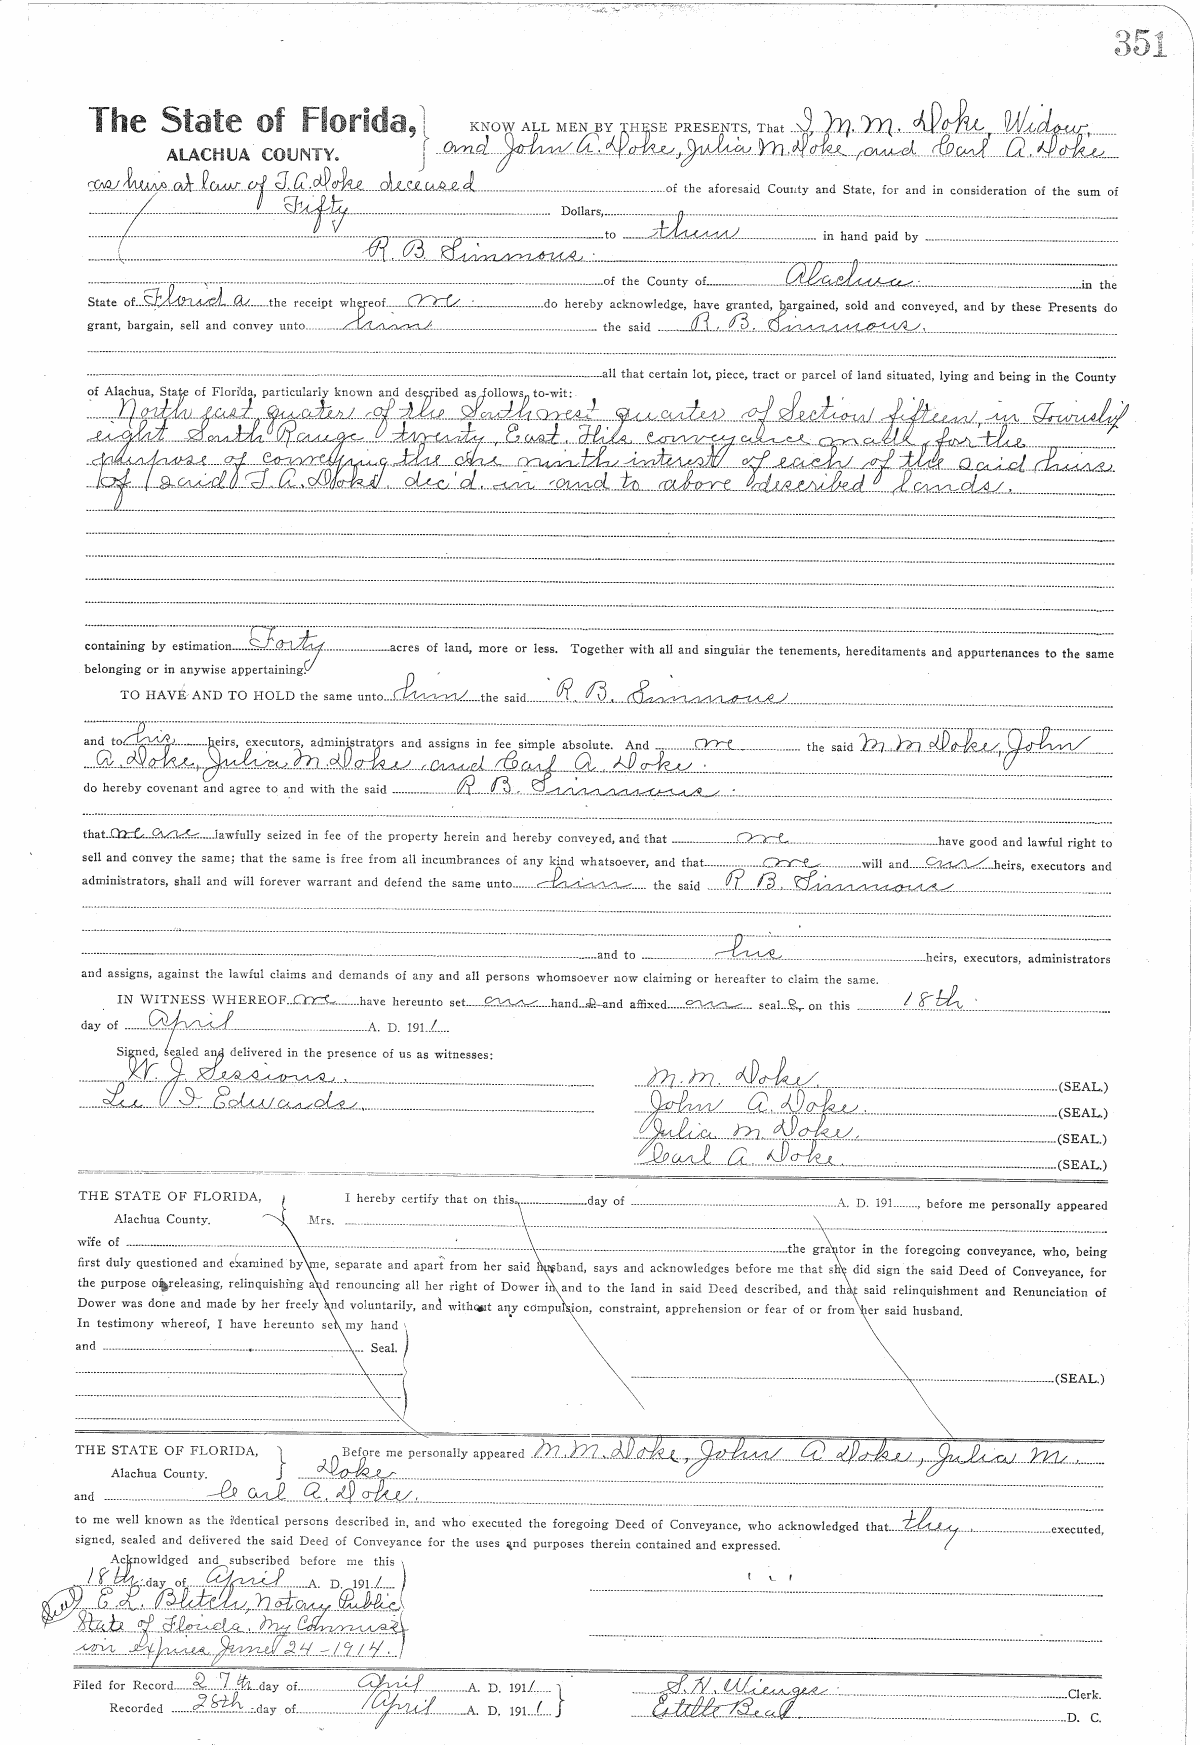 351
The State of Florida, KNOW ALL MEN BY THESE PRESENTS, That I, M. M. Doke, Widow,
ALACHUA COUNTY. and John A. Doke, Julia M. Doke and Carl A. Doke
as heirs at law of T. A. Doke deceased of the aforesaid County and State, for and in consideration of the sum of
Fifty Dollars,
to them in hand paid by
R. B. Simmons.
of the County of Alachua. in the
State of Florida the receipt whereof we do hereby acknowledge, have granted, bargained, sold and conveyed, and by these Presents do
grant, bargain, sell and convey unto him the said R. B. Simmons.
all that certain lot, piece, tract or parcel of land situated, lying and being in the County
of Alachua, State of Florida, particularly known and described as follows, to-wit:
North east quater of the Southwest quarter of Section fifteen, in Township
eight South Range twenty, East. This conveyance made for the
purpose of conveying the one ninth interest of each of the said heirs
of said T. A. Doke. dec'd. in and to above described lands.
containing by estimation Forty acres of land, more or less. Together with all and singular the tenements, hereditaments and appurtenances to the same
belonging or in anywise appertaining.
TO HAVE AND TO HOLD the same unto him the said R. B. Simmons
and to his heirs, executors, administrators and assigns in fee simple absolute. And we the said M. M Doke, John
A. Doke, Julia M. Doke and Carl A. Doke.
do hereby covenant and agree to and with the said R. B. Simmons.
that we are lawfully seized in fee of the property herein and hereby conveyed, and that we have good and lawful right to
sell and convey the same; that the same is free from all incumbrances of any kind whatsoever, and that we will and our heirs, executors and
administrators, shall and will forever warrant and defend the same unto him the said R B. Simmons
and to his heirs, executors, administrators
and assigns, against the lawful claims and demands of any and all persons whomsoever now claiming or hereafter to claim the same.
IN WITNESS WHEREOF we have hereunto set our hand s and affixed our seal s, on this 18th
day of April A. D. 191 1
Signed, sealed and delivered in the presence of us as witnesses:
W. J. Sessions. M. M. Doke. (SEAL.)
Lee I Edwards. John A. Doke. (SEAL.)
Julia M. Doke. (SEAL.)
Carl A. Doke. (SEAL.)
THE STATE OF FLORIDA, I hereby certify that on this day of A. D. 191 , before me personally appeared
Alachua County. Mrs.
wife of the grantor in the foregoing conveyance, who, being
first duly questioned and examined by me, separate and apart from her said husband, says and acknowledges before me that she did sign the said Deed of Conveyance, for
the purpose of releasing, relinquishing and renouncing all her right of Dower in and to the land in said Deed described, and that said relinquishment and Renunciation of
Dower was done and made by her freely and voluntarily, and without any compulsion, constraint, apprehension or fear of or from her said husband.
In testimony whereof, I have hereunto set my hand
and Seal.
(SEAL.)
THE STATE OF FLORIDA, Before me personally appeared M. M. Doke, John A Doke, Julia M.
Alachua County. Doke
and Carl A. Doke.
to me well known as the identical persons described in, and who executed the foregoing Deed of Conveyance, who acknowledged that they executed,
signed, sealed and delivered the said Deed of Conveyance for the uses and purposes therein contained and expressed.
Acknowldged and subscribed before me this
18th day of April A. D. 191 1
(Seal) E. L. Blitch, Notary Public
State of Florida. My Commiss
ion expires June 24 - 1914.
Filed for Record 27th day of April A. D. 191 1 S. H. Wienges. Clerk.
Recorded 28th day of April A. D. 191 1 Estelle Beal. D. C.